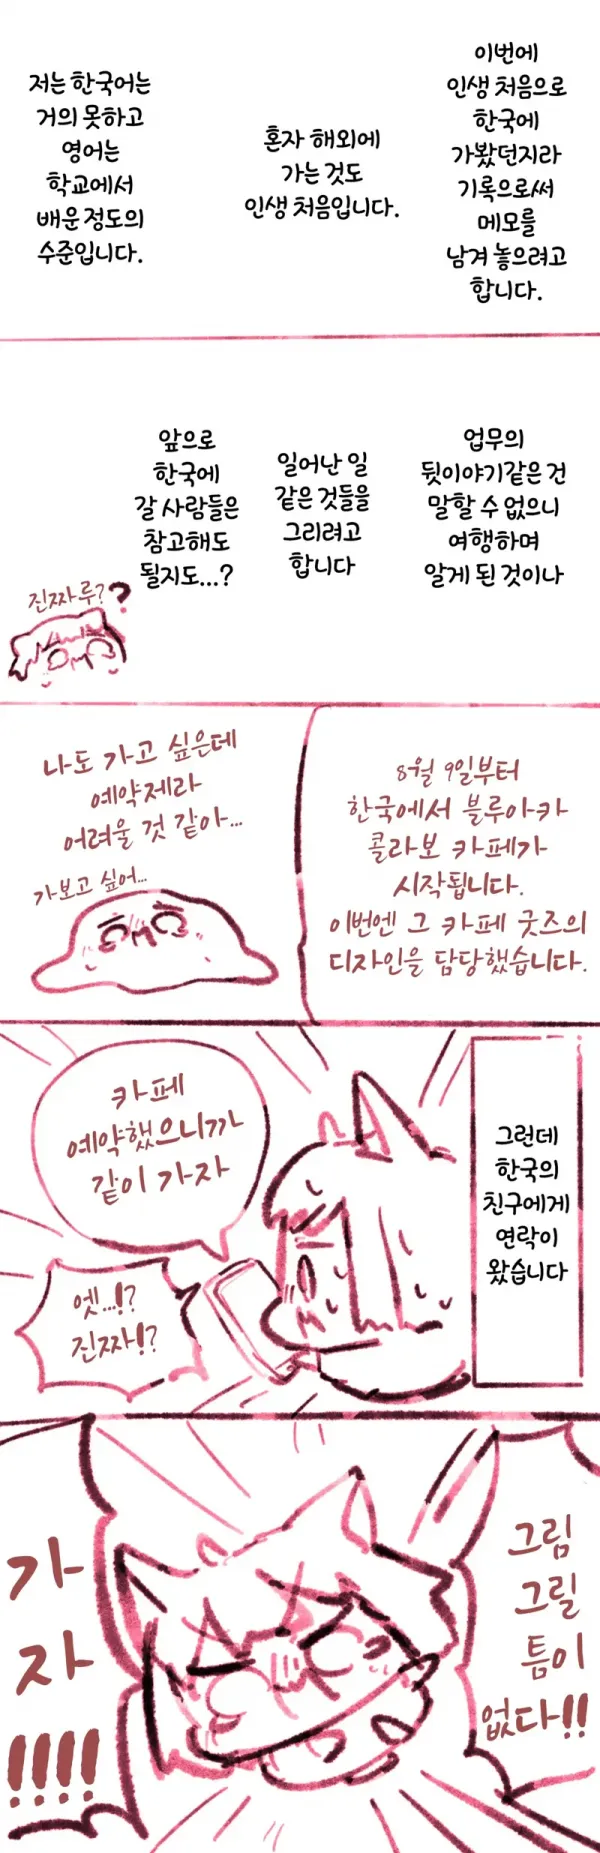 이번에
인생 처음으로
한국에
가봤던지라
기록으로써
메모를
남겨 놓으려고
합니다.
혼자 해외에
가는 것도
인생 처음입니다.
저는 한국어는
거의 못하고
영어는
학교에서
배운 정도의
수준입니다.
업무의
뒷이야기같은 건
말할 수 없으니
여행하며
알게 된 것이나
일어난 일
같은 것들을
그리려고
합니다
앞으로
한국에
갈 사람들은
참고해도
될지도...?
진짜루??
8월 9일부터
한국에서 블루아카
콜라보 카페가
시작됩니다.
이번엔 그 카페 굿즈의
디자인을 담당했습니다.
나도 가고 싶은데
예약제라
어려울 것 같아...
가보고 싶어...
그런데
한국의
친구에게
연락이
왔습니다
카페
예약했으니까
같이 가자
엣...!?
진짜!?
그림
그릴
틈이
없다!!
가
자
!!!!